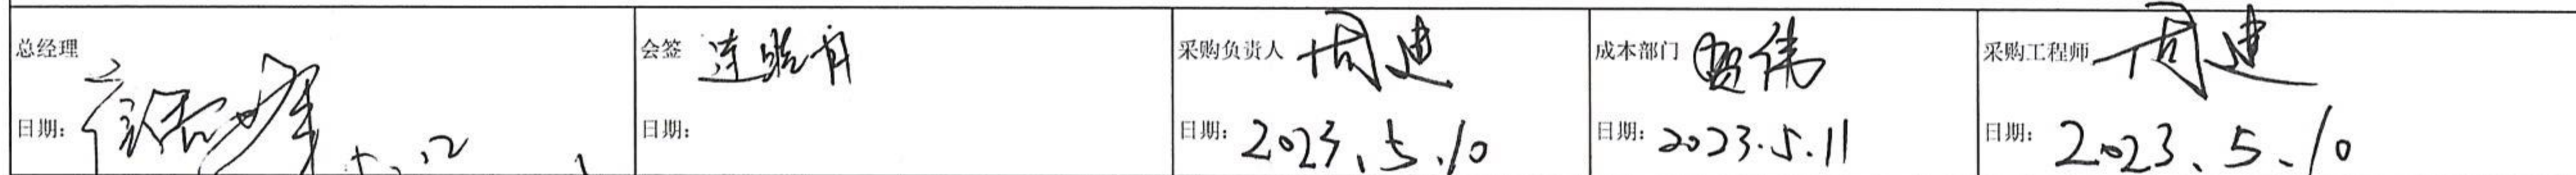 总经理
日期:
会签 连晓青
日期:
采购负责人 周建
日期: 2023.5.10
成本部门 贺伟
日期: 2023.5.11
采购工程师 周建
日期: 2023.5.10